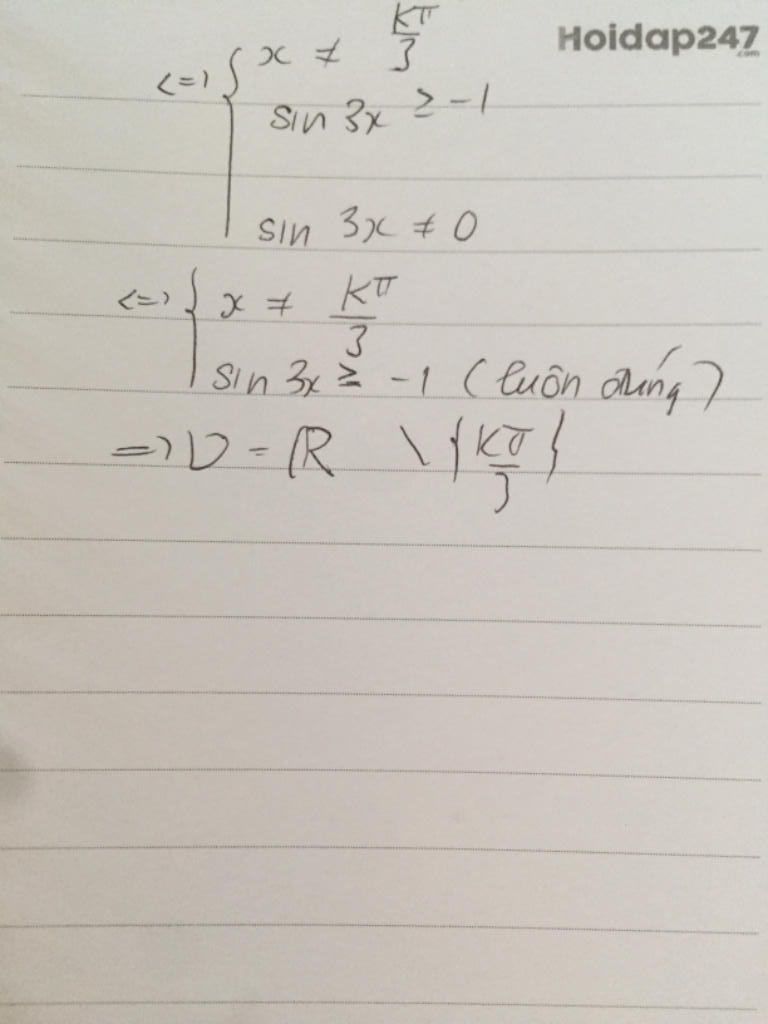 Hoidap247
.com
<=> { x ≠ kπ/3
sin 3x ≥ -1
sin 3x ≠ 0
<=> { x ≠ kπ/3
sin 3x ≥ -1 (luôn đúng)
=> D = ℝ \ {kπ/3}